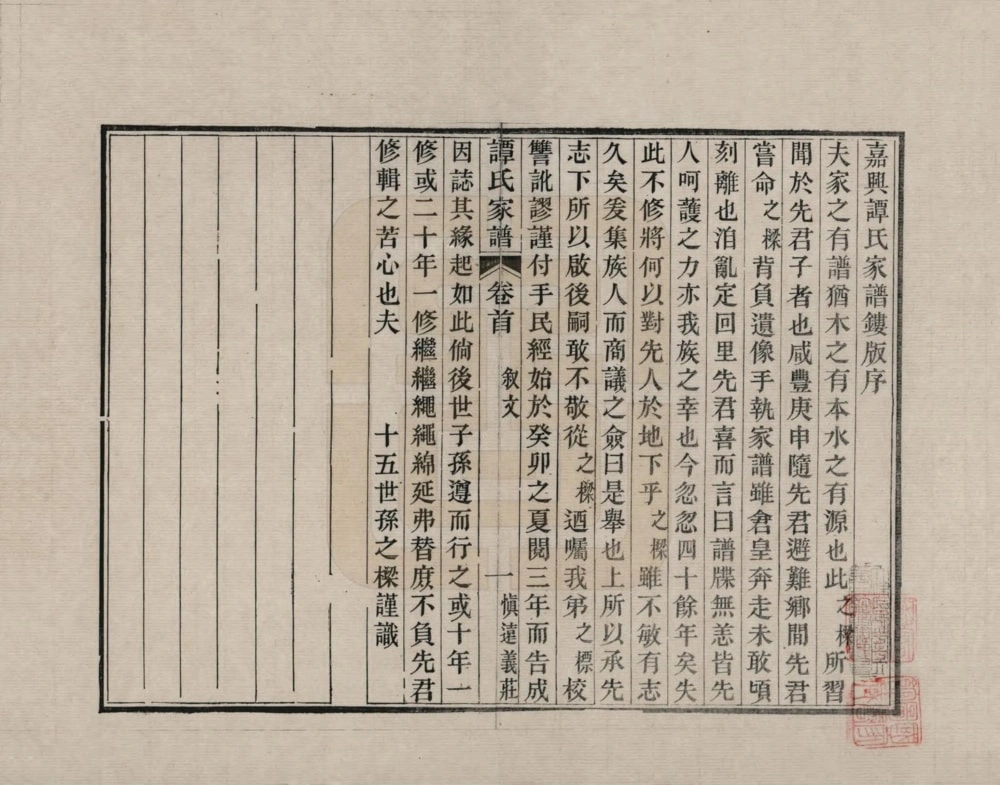 嘉興譚氏家譜鏤版序
夫家之有譜猶木之有本水之有源也此之樑所習
聞於先君子者也咸豐庚申隨先君避難鄉間先君
嘗命之樑背負遺像手執家譜雖倉皇奔走未敢頃
刻離也洎亂定回里先君喜而言曰譜牒無恙皆先
人呵護之力亦我族之幸也今忽忽四十餘年矣失
此不修將何以對先人於地下乎之樑雖不敏有志
久矣爰集族人而商議之僉曰是舉也上所以承先
志下所以啟後嗣敢不敬從之樑迺囑我弟之標校
讐訛謬謹付手民經始於癸卯之夏閱三年而告成
譚氏家譜 卷首 敘文 一 愼遠義莊
因誌其緣起如此倘後世子孫遵而行之或十年一
修或二十年一修繼繼繩繩綿延弗替庶不負先君
修輯之苦心也夫 十五世孫之樑謹識